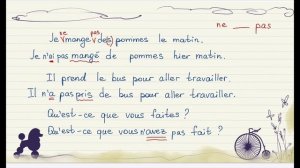 ne ___ pas
ne pas
Je mange des pommes le matin.
Je n'ai pas mangé de pommes hier matin.
Il prend le bus pour aller travailler.
Il n'a pas pris de bus pour aller travailler.
Qu'est-ce que vous faites?
Qu'est-ce que vous n'avez pas fait?